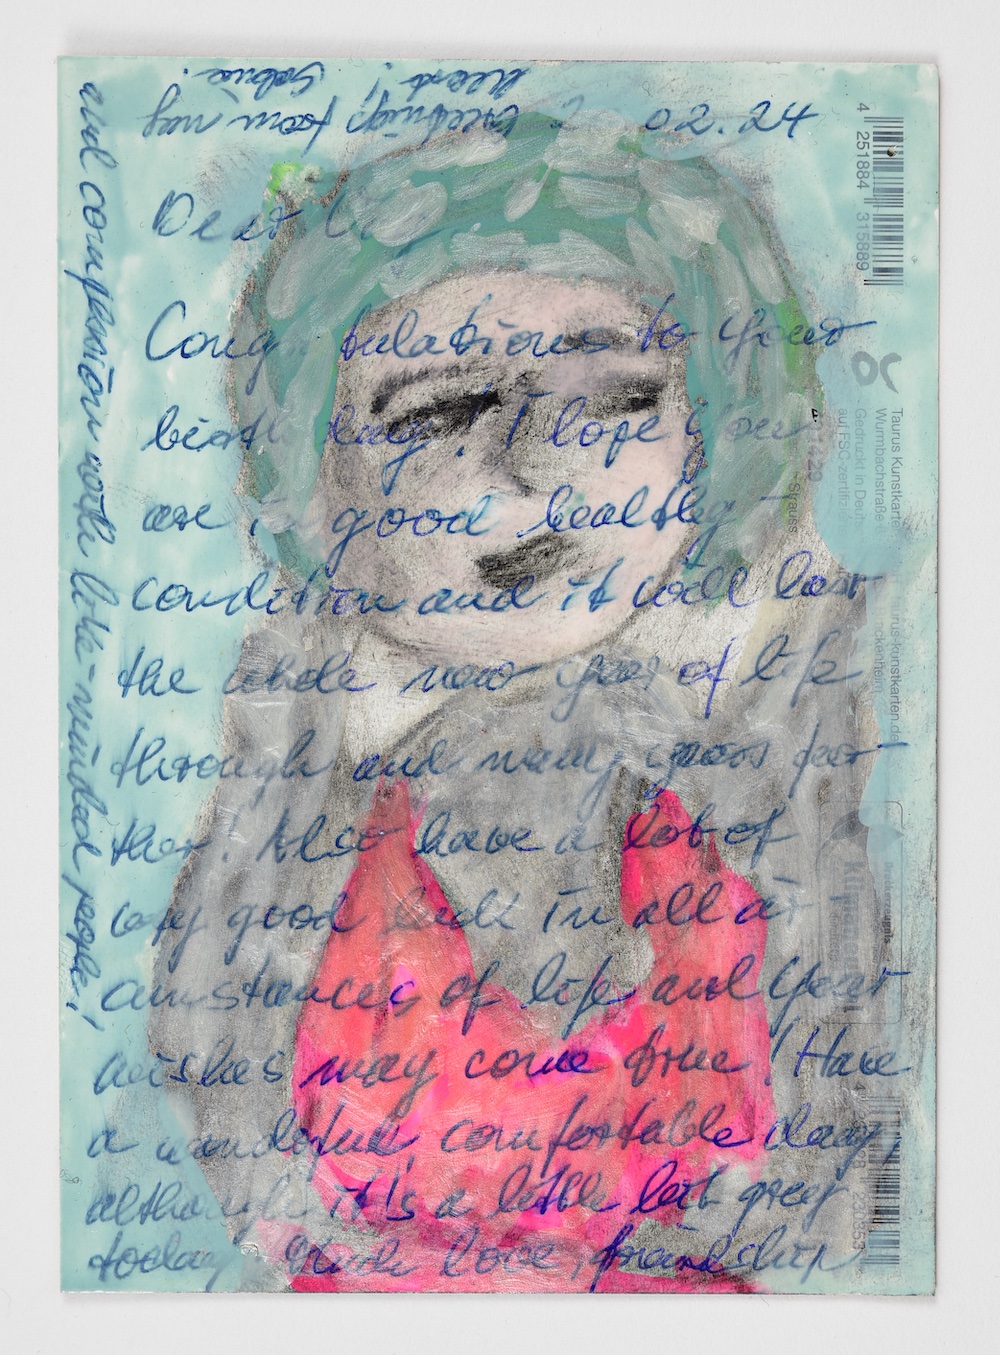 02.24
Dear
Congratulations to your
birthday! I hope you
are in good healthy
condition and it will last
the whole new year of life
through and many years fur-
ther! Also have a lot of
very good luck in all cir-
cumstances of life and your
wishes may come true! Have
a wonderful, comfortable day,
although it's a little bit grey
today! Much love, friendship
and companion with like-minded people,
Greetings from my
heart!
4 251884 315889
Taurus Kunstkarte
Wurmbachstraße
Gedruckt in Deu
auf FSC-zertifi
Strauss
taurus-kunstkarten.de